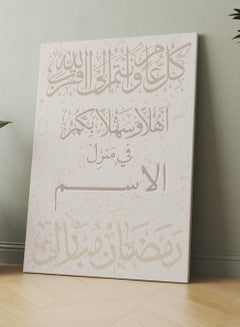 كل عام وأنتم إلى الله أقرب
أهلاً وسهلاً بكم
في منزل
الاسم
رمضان مبارك